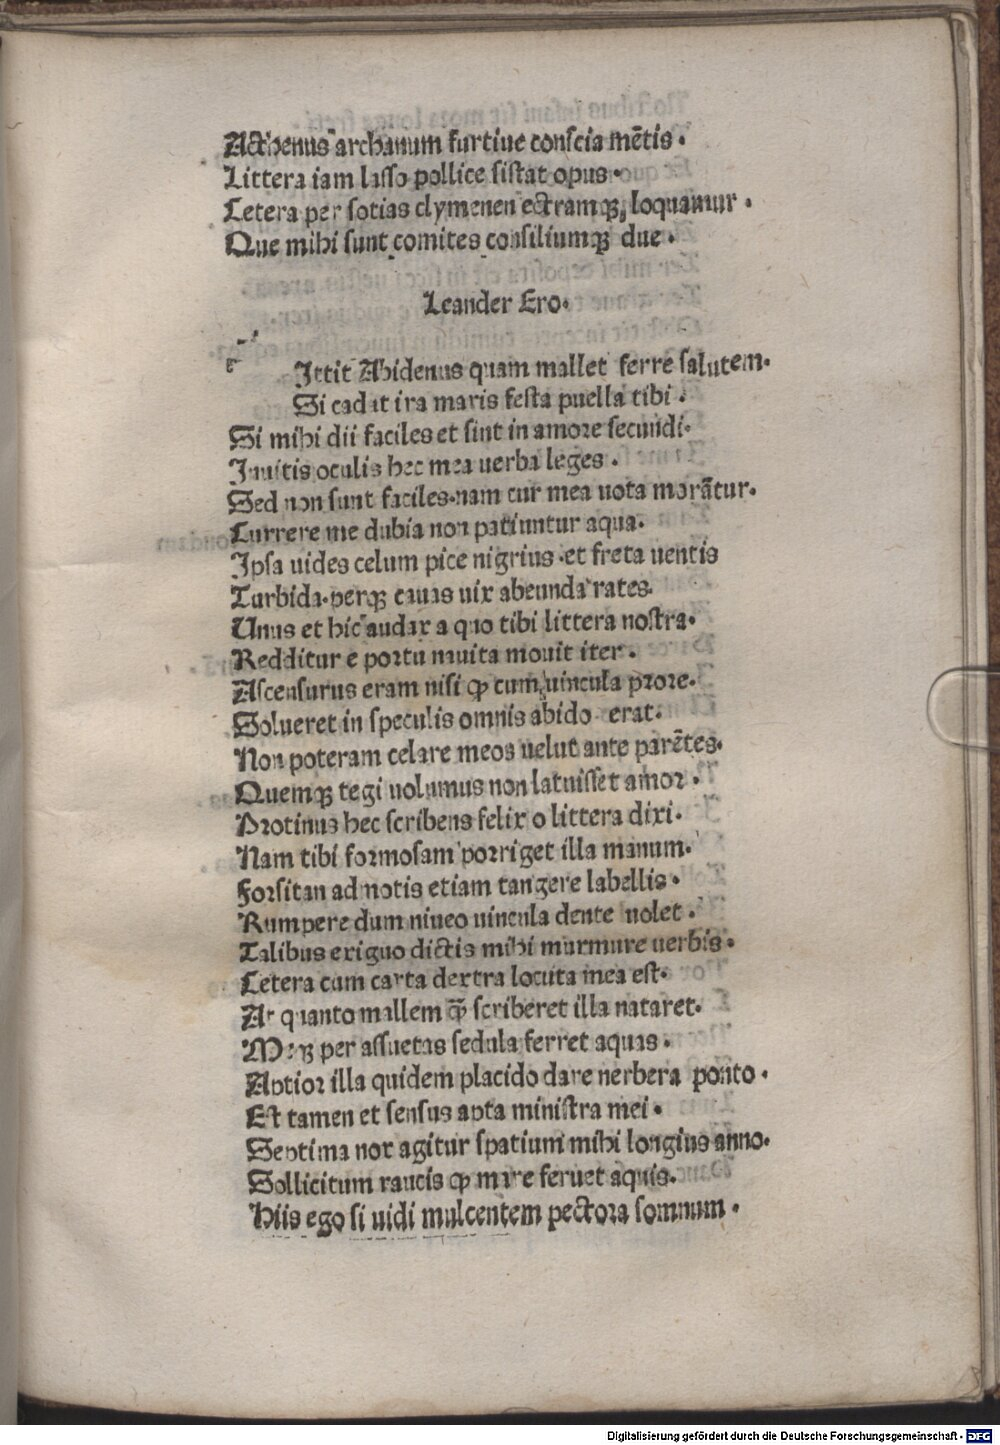 Acthenus archanum furtiue conscia mētis.
Littera iam lasso pollice sistat opus.
Cetera per sotias clymenen ectramqꝫ loquamur.
Que mihi sunt comites consiliumqꝫ due.
Leander Ero.
Ittit Abidenus quam mallet ferre salutem.
Si cadat ira maris festa puella tibi.
Si mihi dii faciles et sint in amore secundi.
Inuitis oculis hec mea uerba leges.
Sed non sunt faciles.nam cur mea uota morātur.
Currere me dubia non patiuntur aqua.
Ipsa uides celum pice nigrius.et freta uentis
Turbida.perqꝫ cauas uix abeunda rates.
Unus et hic audax a quo tibi littera nostra.
Redditur e portu muita mouit iter.
Ascensurus eram nisi ꝙ cum uincula prore.
Solueret in speculis omnis abido erat.
Non poteram celare meos uelut ante parētes.
Quemqꝫ tegi uolumus non latuisset amor.
Protinus hec scribens felix o littera dixi.
Nam tibi formosam porriget illa manum.
Forsitan ad notis etiam tangere labellis.
Rumpere dum niueo uincula dente uolet.
Talibus exiguo dictis mihi murmure uerbis.
Cetera cum carta dextra locuta mea est.
At quanto mallem ꝙ̄ scriberet illa nataret.
Meqꝫ per assuetas sedula ferret aquas.
Aptior illa quidem placido dare nerbera ponto.
Est tamen et sensus apta ministra mei.
Septima nox agitur spatium mihi longius anno.
Sollicitum raucis ꝙ mare feruet aquis.
Hiis ego si uidi mulcentem pectora somnum.
Digitalisierung gefördert durch die Deutsche Forschungsgemeinschaft - DFG